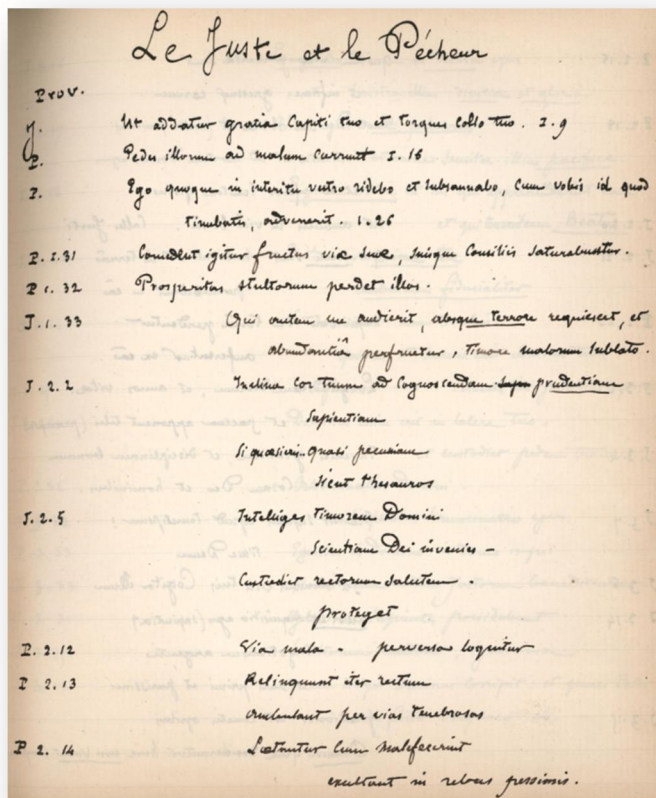 Le Juste et le Pécheur
Prov.
J. Ut addatur gratia Capiti tuo et torques collo tuo. I. 9
P. Pedes illorum ad malum currunt I. 16
P. Ego quoque in interitu vestro ridebo et subsannabo, cum vobis id quod
timebatis, advenerit. 1. 26
P. I. 31 Comedent igitur fructus viæ suæ, suisque Consiliis saturabuntur.
P 1. 32 Prosperitas stultorum perdet illos.
J. 1. 33 Qui autem me audierit, absque terrore requiescet, et
abundantiâ perfruetur, timore malorum sublato.
J. 2. 2 Inclina cor tuum ad Cognoscendam prudentiam
Sapientiam
Si quæsieris quasi pecuniam
sicut thesauros
J. 2. 5 Intelliges timorem Domini
Scientiam Dei invenies -
Custodiet rectorum salutem -
proteget
P. 2. 12 Via mala - perversa loquitur
P 2. 13 Relinquunt iter rectum
ambulant per vias tenebrosas
P 2. 14 Lætantur cum malefecerint
exultant in rebus pessimis.